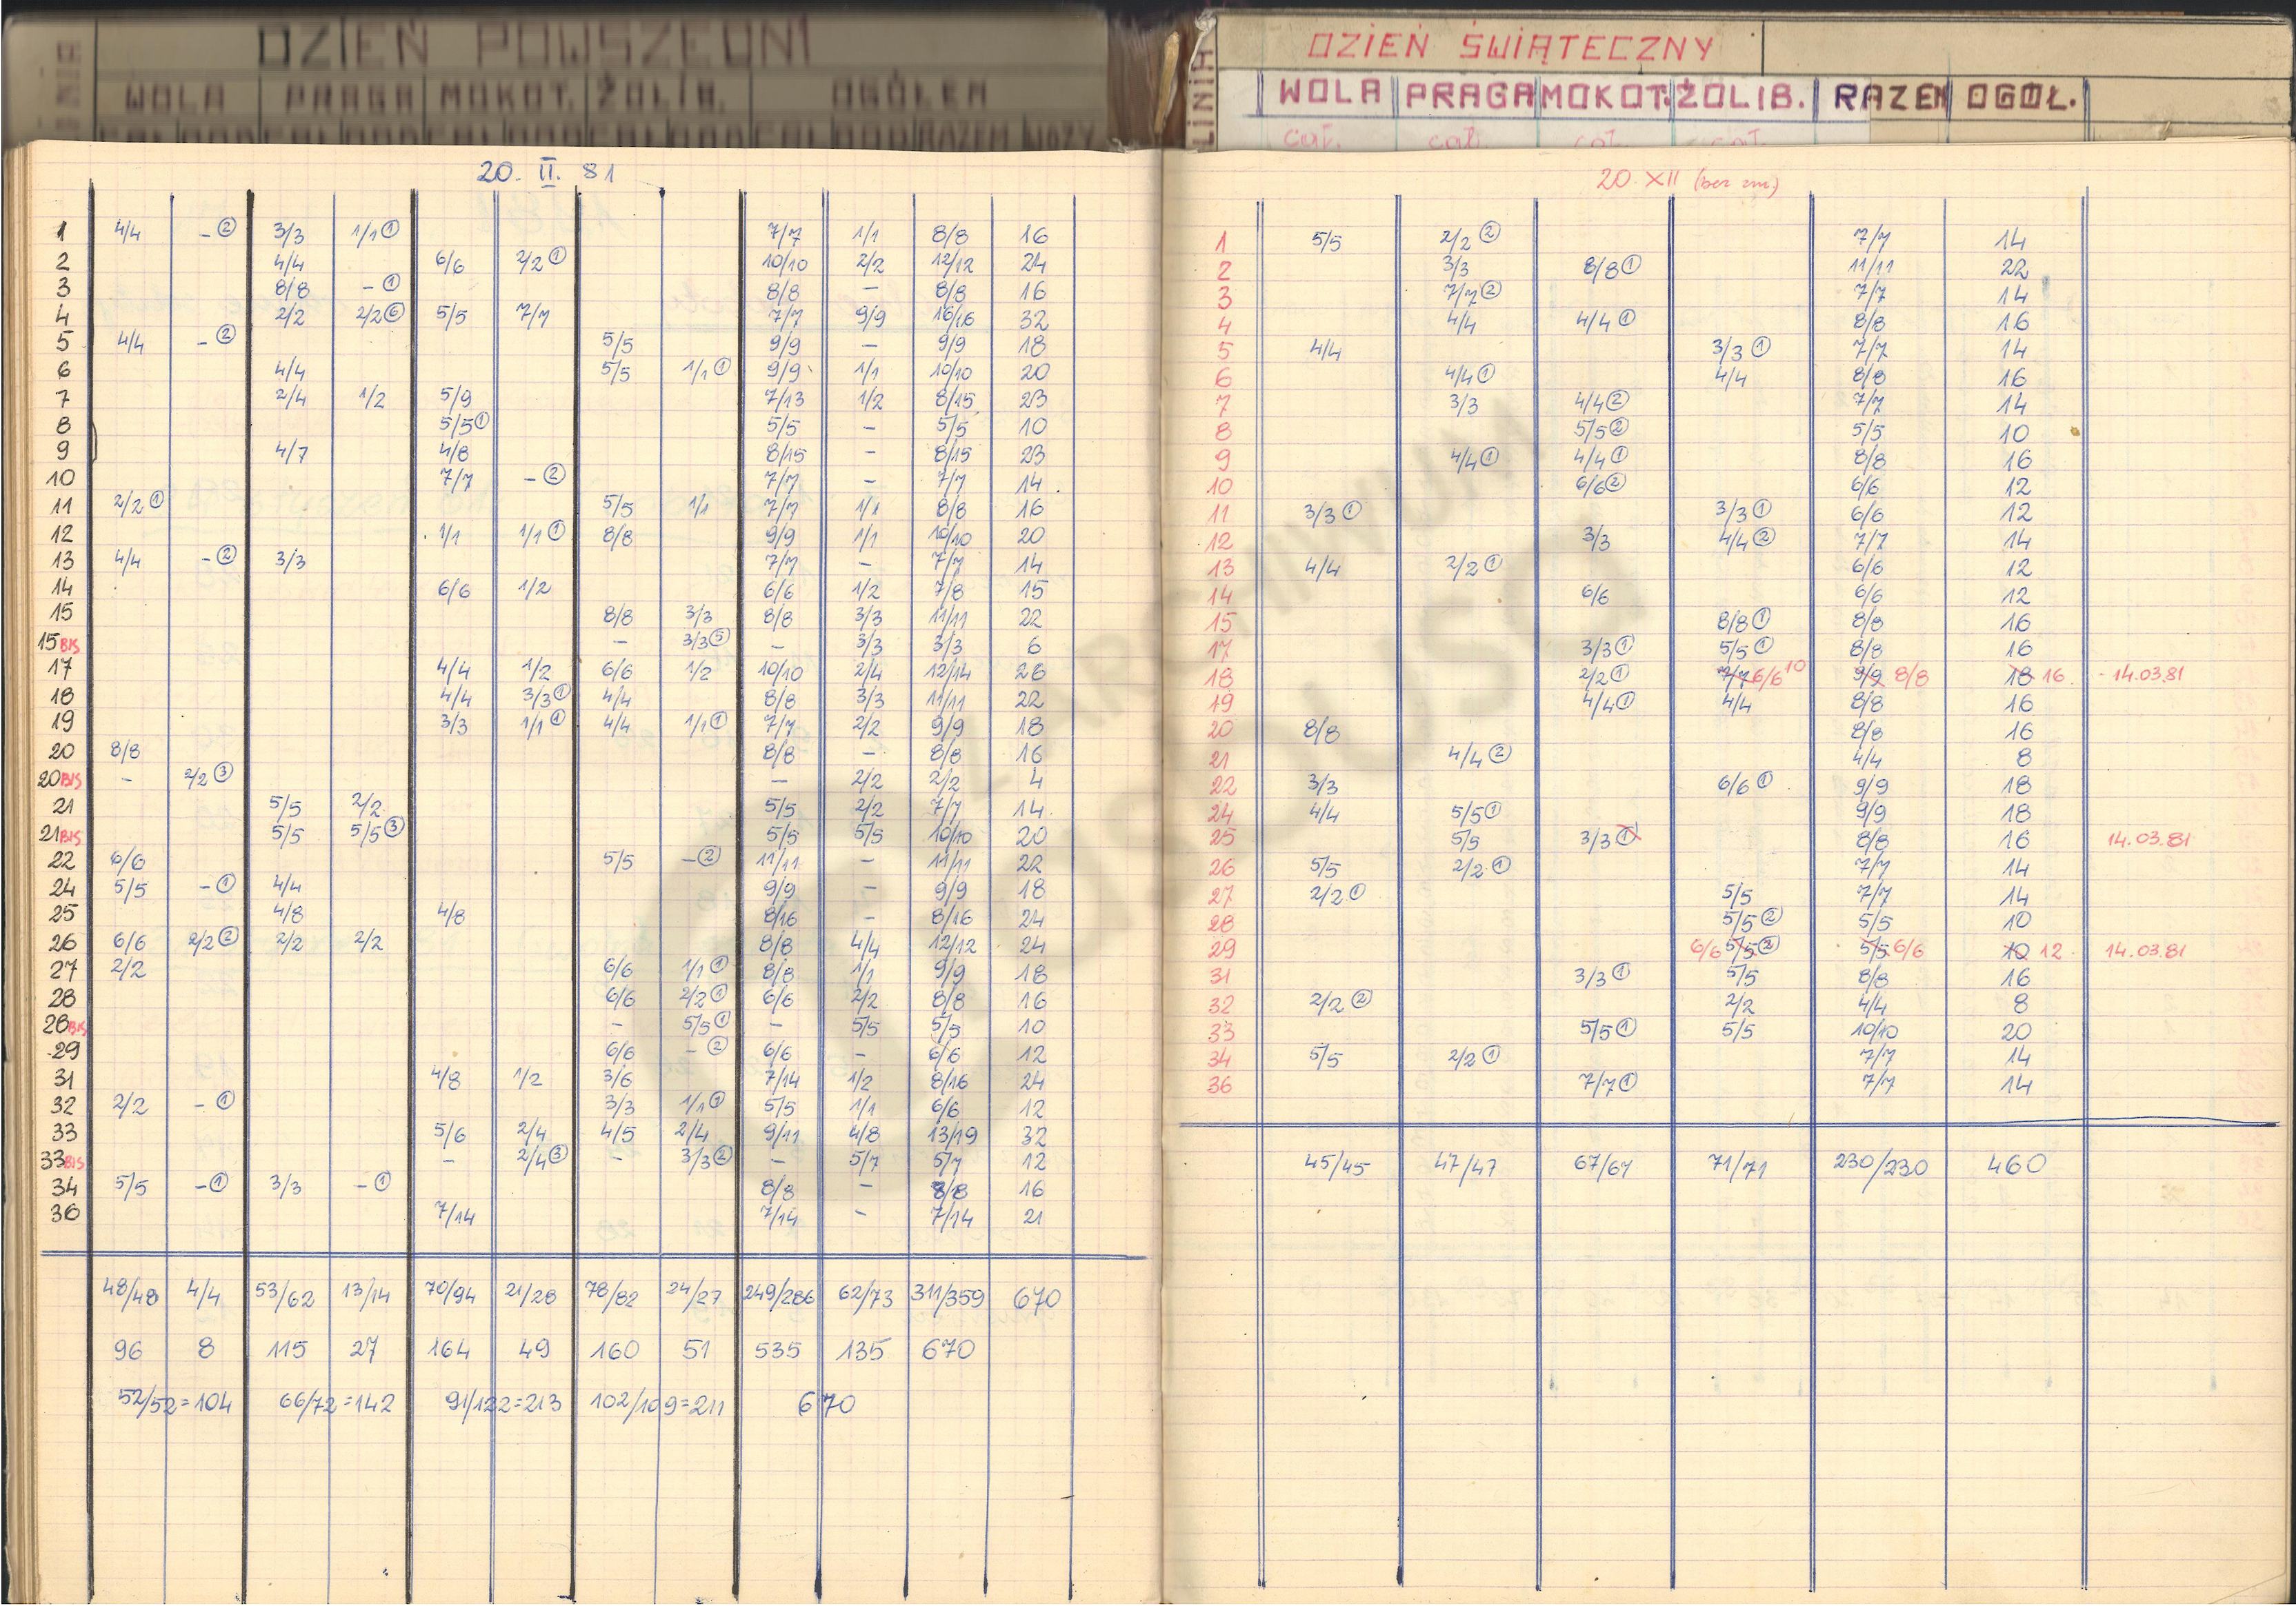 DZIEŃ POWSZEDNI
LINIA WOLA PRAGA MOKOT. ŻOLIB. OGÓŁEM
20. II. 81
1 4/4 - ② 3/3 1/1 ① 7/7 1/1 8/8 16
2 4/4 6/6 2/2 ① 10/10 2/2 12/12 24
3 8/8 - ① 8/8 - 8/8 16
4 2/2 2/2 ⑥ 5/5 7/7 7/7 9/9 16/16 32
5 4/4 - ② 5/5 9/9 - 9/9 18
6 4/4 5/5 1/1 ① 9/9 1/1 10/10 20
7 2/4 1/2 5/9 7/13 1/2 8/15 23
8 5/5 ① 5/5 - 5/5 10
9 4/7 4/8 8/15 - 8/15 23
10 7/7 - ② 7/7 - 7/7 14
11 2/2 ① 5/5 1/1 7/7 1/1 8/8 16
12 1/1 1/1 ① 8/8 9/9 1/1 10/10 20
13 4/4 - ② 3/3 7/7 - 7/7 14
14 6/6 1/2 6/6 1/2 7/8 15
15 8/8 3/3 8/8 3/3 11/11 22
15 BIS - 3/3 ⑤ - 3/3 3/3 6
17 4/4 1/2 6/6 1/2 10/10 2/4 12/14 26
18 4/4 3/3 ① 4/4 8/8 3/3 11/11 22
19 3/3 1/1 ① 4/4 1/1 ① 7/7 2/2 9/9 18
20 8/8 8/8 - 8/8 16
20 BIS - 2/2 ③ - 2/2 2/2 4
21 5/5 2/2 5/5 2/2 7/7 14
21 BIS 5/5 5/5 ③ 5/5 5/5 10/10 20
22 6/6 5/5 - ② 11/11 - 11/11 22
24 5/5 - ① 4/4 9/9 - 9/9 18
25 4/8 4/8 8/16 - 8/16 24
26 6/6 2/2 ② 2/2 2/2 8/8 4/4 12/12 24
27 2/2 6/6 1/1 ① 8/8 1/1 9/9 18
28 6/6 2/2 ① 6/6 2/2 8/8 16
28 BIS - 5/5 ① - 5/5 5/5 10
29 6/6 - ② 6/6 - 6/6 12
31 4/8 1/2 3/6 7/14 1/2 8/16 24
32 2/2 - ① 3/3 1/1 ① 5/5 1/1 6/6 12
33 5/6 2/4 4/5 2/4 9/11 4/8 13/19 32
33 BIS - 2/4 ③ - 3/3 ② - 5/7 5/7 12
34 5/5 - ① 3/3 - ① 8/8 - 8/8 16
36 7/14 7/14 - 7/14 21
48/48 4/4 53/62 13/14 70/94 21/28 78/82 24/27 249/286 62/73 311/359 670
96 8 115 27 164 49 160 51 535 135 670
52/52=104 66/72=142 91/122=213 102/109=211 670
DZIEŃ ŚWIĄTECZNY
LINIA WOLA PRAGA MOKOT. ŻOLIB. RAZEM OGÓŁ.
cał. cał. cał. cał.
20 XII (bez zm)
1 5/5 2/2 ② 7/7 14
2 3/3 8/8 ① 11/11 22
3 7/7 ② 7/7 14
4 4/4 4/4 ① 8/8 16
5 4/4 3/3 ① 7/7 14
6 4/4 ① 4/4 8/8 16
7 3/3 4/4 ② 7/7 14
8 5/5 ② 5/5 10
9 4/4 ① 4/4 ① 8/8 16
10 6/6 ② 6/6 12
11 3/3 ① 3/3 ① 6/6 12
12 3/3 4/4 ② 7/7 14
13 4/4 2/2 ① 6/6 12
14 6/6 6/6 12
15 8/8 ① 8/8 16
17 3/3 ① 5/5 ① 8/8 16
18 2/2 ① 7/7 6/6 10 9/9 8/8 18 16 - 14.03.81
19 4/4 ① 4/4 8/8 16
20 8/8 8/8 16
21 4/4 ② 4/4 8
22 3/3 6/6 ① 9/9 18
24 4/4 5/5 ① 9/9 18
25 5/5 3/3 ① 8/8 16 14.03.81
26 5/5 2/2 ① 7/7 14
27 2/2 ① 5/5 7/7 14
28 5/5 ② 5/5 10
29 6/6 5/5 ② 5/5 6/6 10 12 14.03.81
31 3/3 ① 5/5 8/8 16
32 2/2 ② 2/2 4/4 8
33 5/5 ① 5/5 10/10 20
34 5/5 2/2 ① 7/7 14
36 7/7 ① 7/7 14
45/45 47/47 67/67 71/71 230/230 460